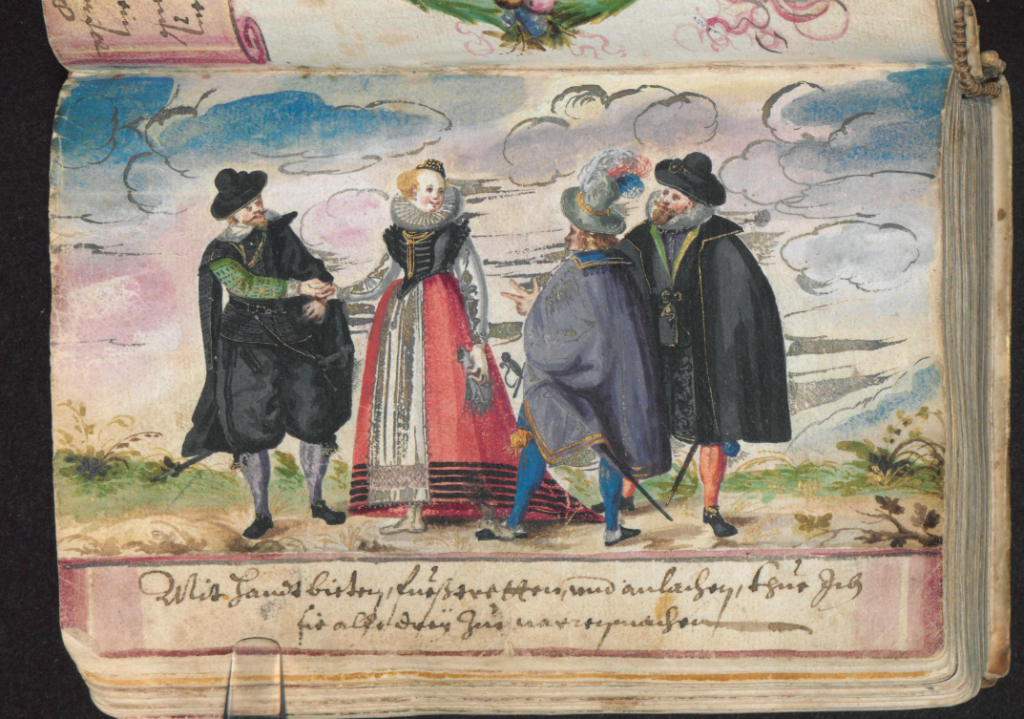 Mit Handt bieten, fueß tretten, und anlachen, thue Ich
sie alle drey Zue narren machen